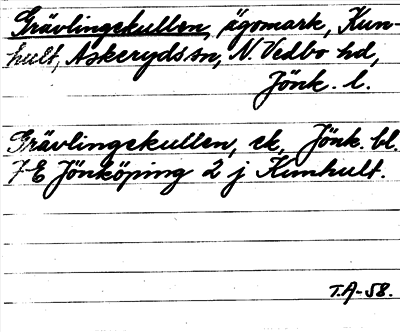 Grävlingekullen, ägomark, Kun-
hult, Askeryds sn, N. Vedbo hd,
Jönk. l.
Grävlingekullen, ek, Jönk. bl.
7E Jönköping 2 j Kunhult.
T.A-58.